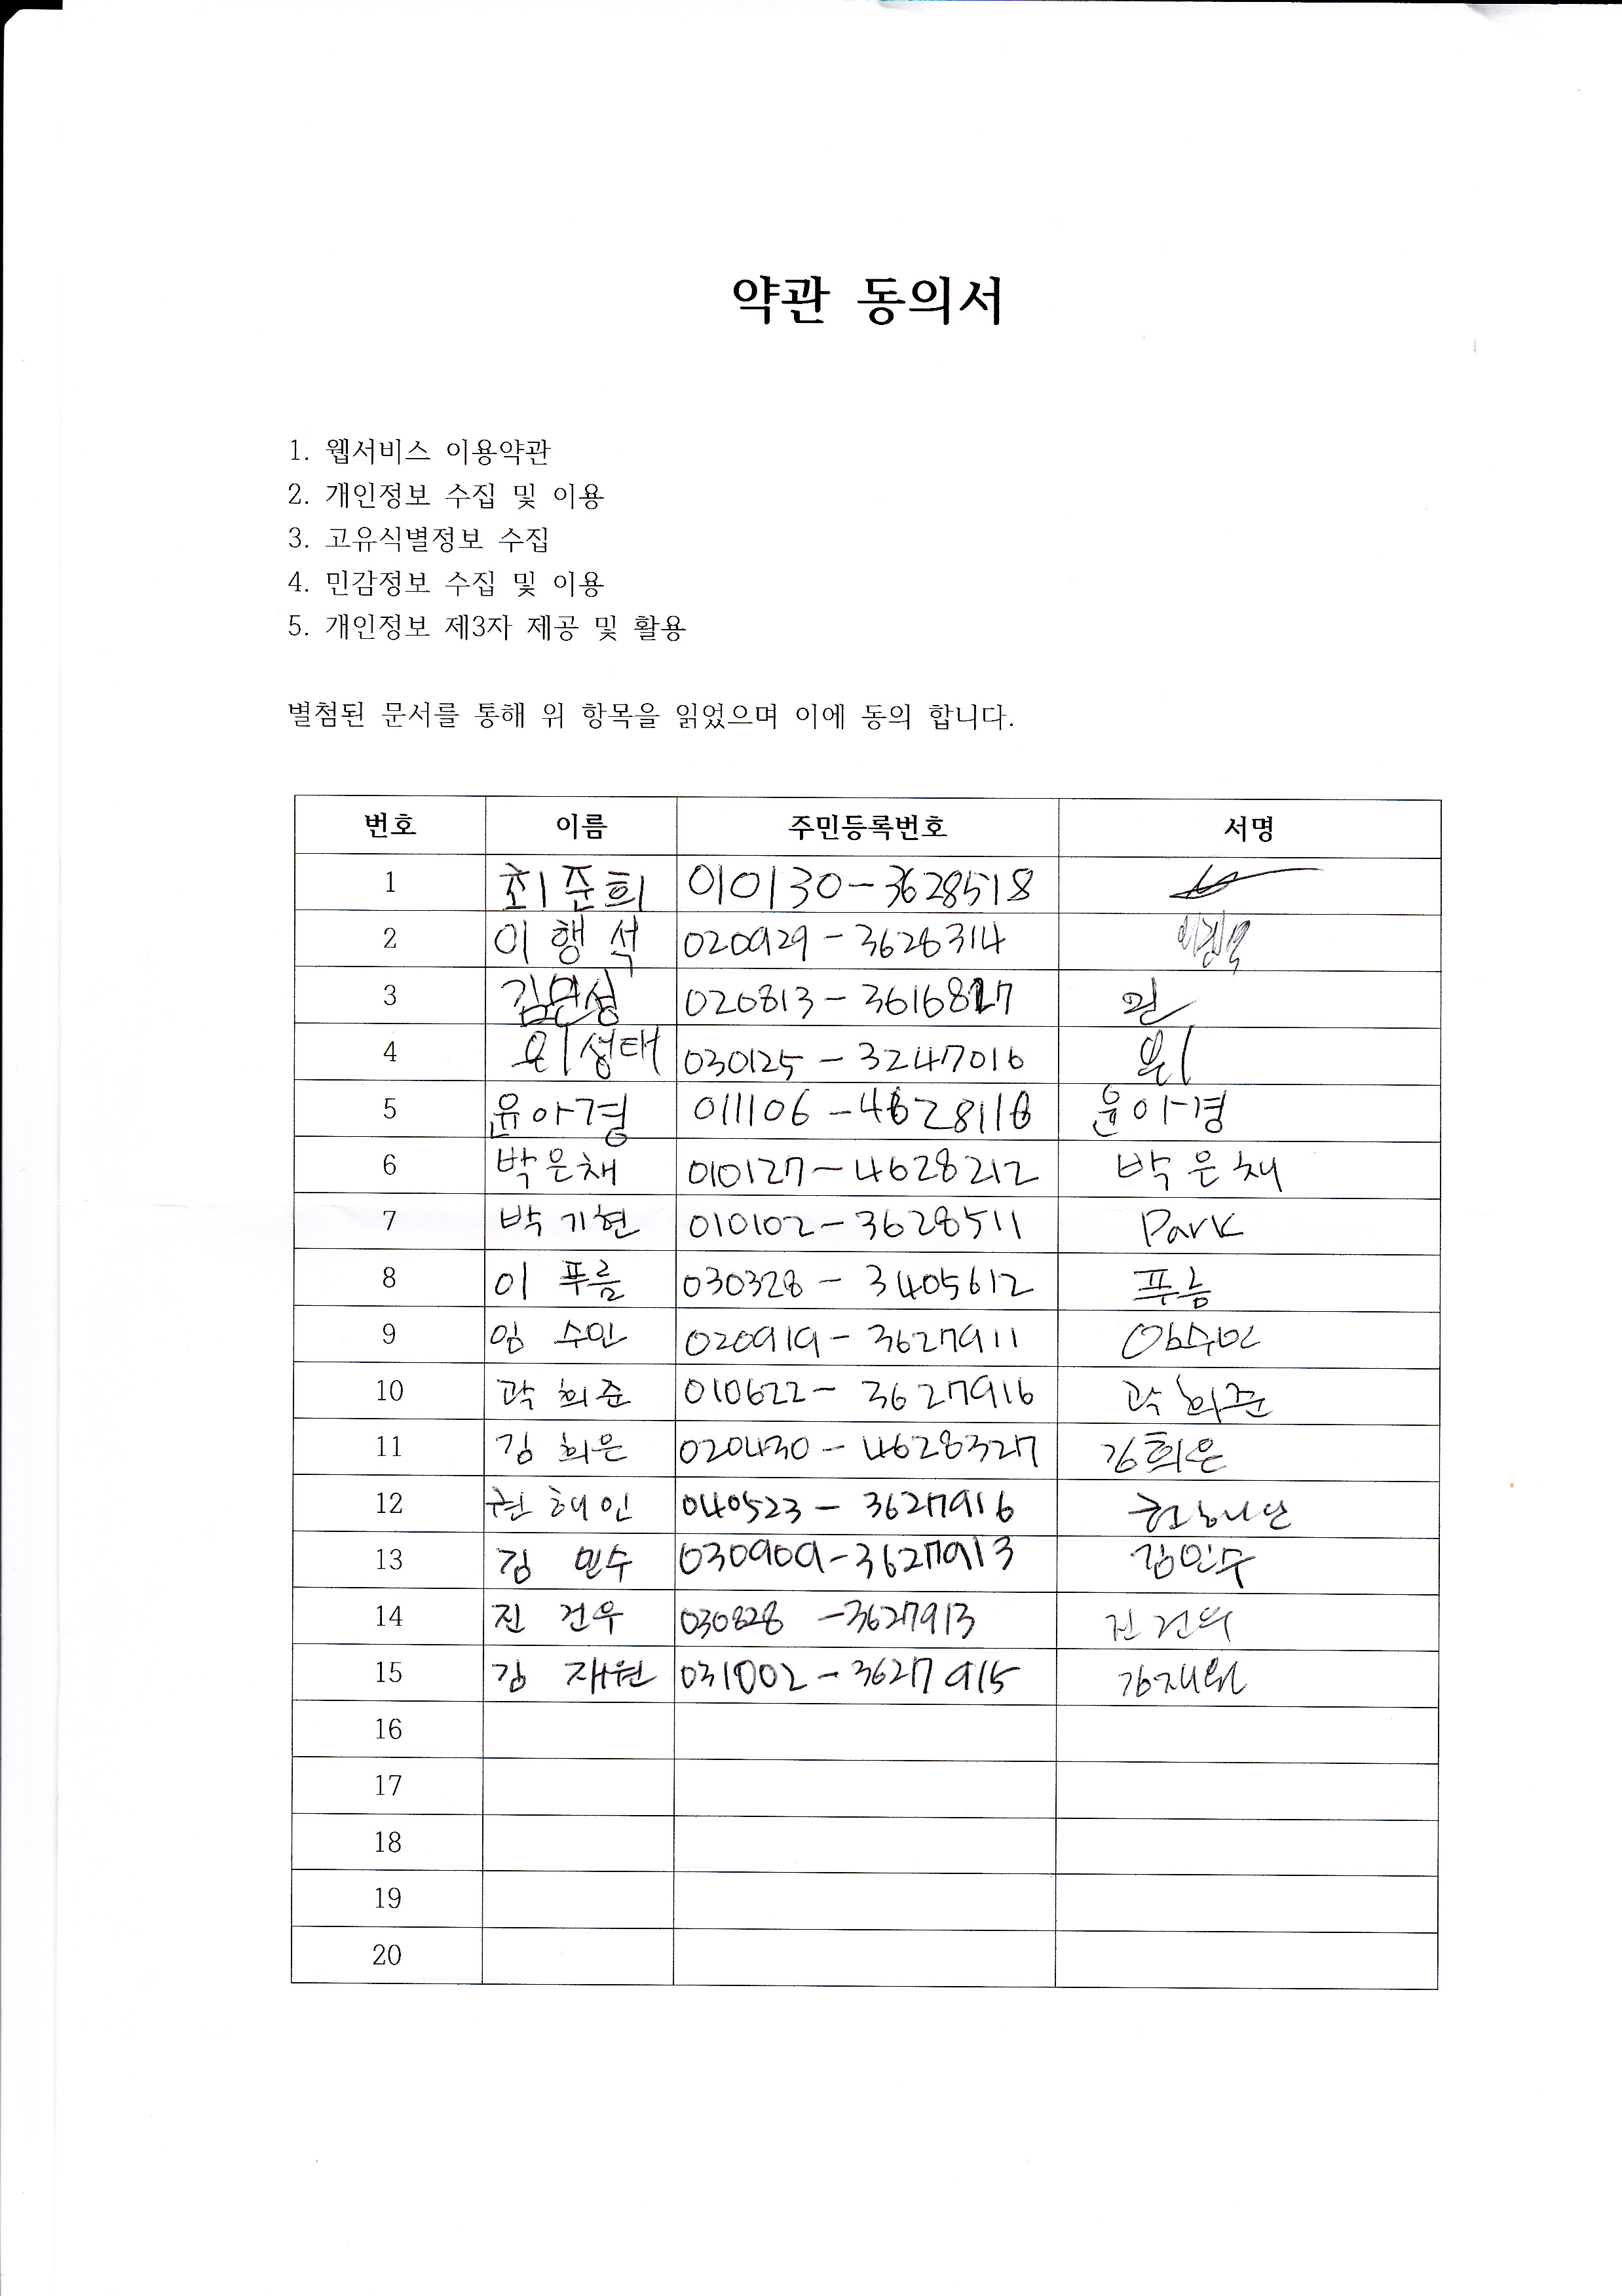 약관 동의서
1. 웹서비스 이용약관
2. 개인정보 수집 및 이용
3. 고유식별정보 수집
4. 민감정보 수집 및 이용
5. 개인정보 제3자 제공 및 활용
별첨된 문서를 통해 위 항목을 읽었으며 이에 동의 합니다.
번호 이름 주민등록번호 서명
1 최준희 010130-3628518
2 이행석 020929-3628314
3 020813-3616827
4 위성태 030125-3247016 위
5 윤아경 011106-4628118 윤아경
6 박은채 010127-4628212 박은채
7 박기현 010102-3628511 Park
8 이푸름 030328-3405612 푸름
9 임수민 020919-3627911 임수민
10 곽희준 010622-3627916 곽희준
11 김희은 020430-4628327 김희은
12 권해인 040523-3627916
13 김민수 030909-3627913 김민수
14 진건우 030828-3627913 진건우
15 김재원 031002-3627915 김재원
16
17
18
19
20